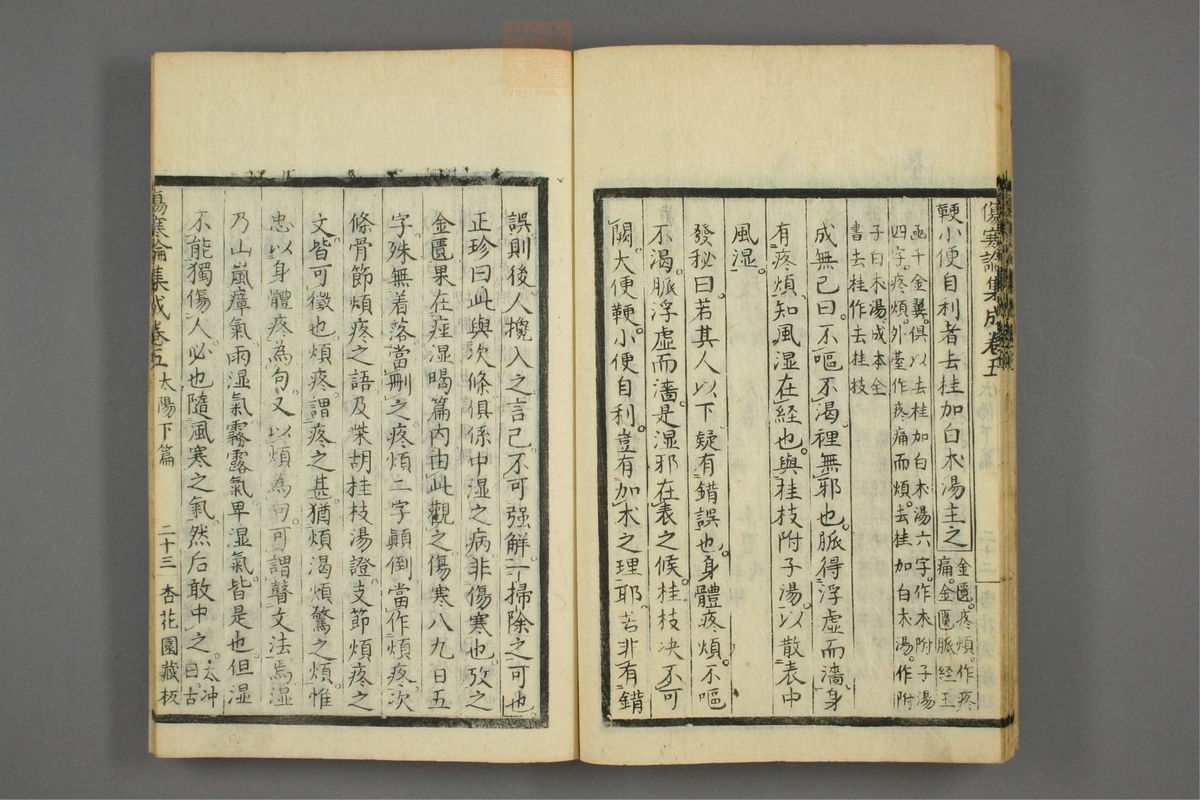 傷寒論集成卷五
鞕小便自利者去桂加白朮湯主之金匱。疼煩。作疼
痛。金匱脈經玉
函千金翼。俱以去桂加白朮湯六字。作朮附子湯
四字。疼煩。外臺作疼痛而煩。去桂加白朮湯。作附
子白朮湯。成本全
書去桂作去桂枝
成無己曰。不嘔不渴。裡無邪也。脈得浮虛而濇。身
有疼煩。知風濕在經也。與桂枝附子湯。以散表中
風湿。
發秘曰。若其人以下。疑有錯誤也。身體疼煩。不嘔
不渴。脈浮虛而濇。是湿邪在表之候。桂枝決不可
闕。大便鞕。小便自利。豈有加朮之理耶。若非有錯
誤。則後人攙入之言已。不可强解。一掃除之可也。
正珍曰。此與次條俱係中湿之病。非傷寒也。攷之
金匱。果在痓湿暍篇內。由此觀之。傷寒八九日五
字。殊無着落。當刪之。疼煩二字顛倒。當作煩疼。次
條骨節煩疼之語。及柴胡桂枝湯證支節煩疼之
文。皆可徵也。煩疼。謂疼之甚。猶煩渴煩驚之煩。惟
忠以身體疼為句。又以煩為句。可謂瞽文法焉。湿
乃山嵐瘴氣。雨湿氣。霧露氣。卑湿氣皆是也。但湿
不能獨傷人。必也隨風寒之氣。然后敢中之。太冲
曰。古
傷寒論集成卷五
太陽下篇
二十三
杏花園藏板